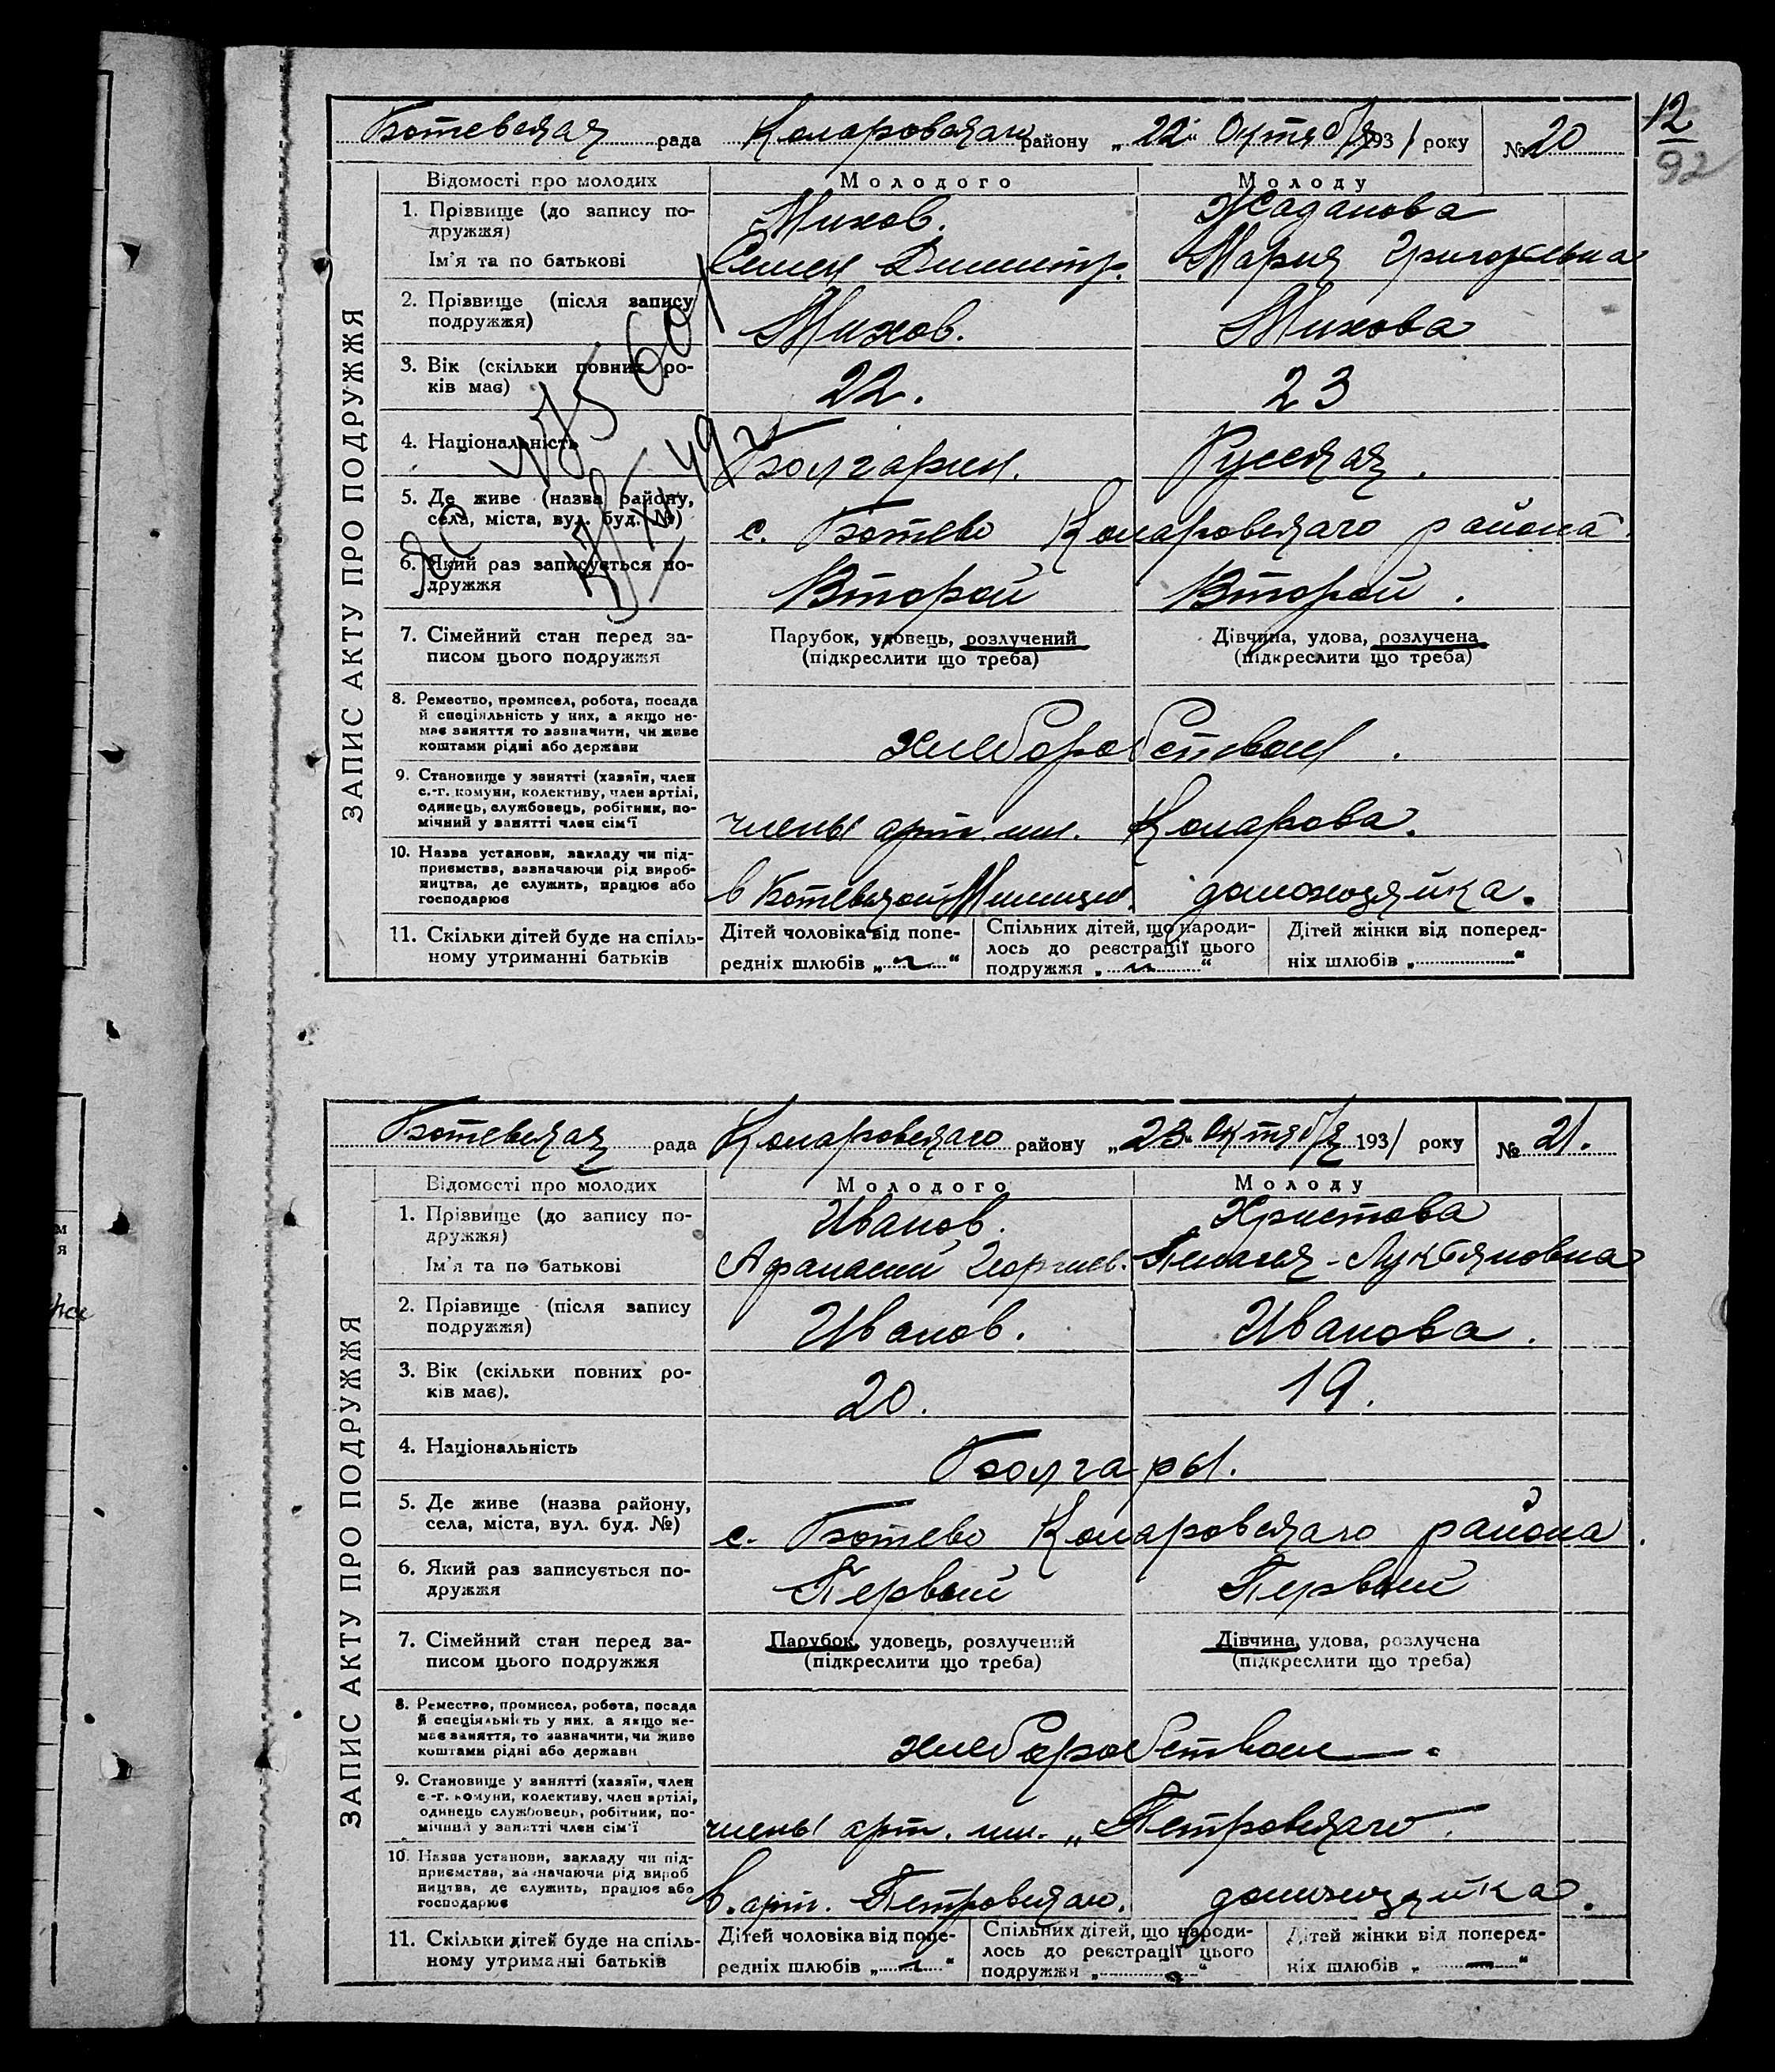 12
92
Ботевская рада Коларовского району „22“ Октября 1931 року № 20
ЗАПИС АКТУ ПРО ПОДРУЖЖЯ
Відомості про молодих Молодого Молоду
1. Прізвище (до запису по- Михов. Жаданова
дружжя)
Ім'я та по батькові Семен Димитр. Мария Григорьевна
2. Прізвище (після запису
подружжя) Михов. Михова
3. Вік (скільки повних ро-
ків має) 22. 23
4. Національність Болгарин. Русская.
5. Де живе (назва району,
села, міста, вул. буд. №) с. Ботево Коларовского района.
6. Який раз записується по-
дружжя Второй Второй.
7. Сімейний стан перед за- Парубок, удовець, розлучений Дівчина, удова, розлучена
писом цього подружжя (підкреслити що треба) (підкреслити що треба)
8. Ремество, промисел, робота, посада
й спеціяльність у них, а якщо не-
має заняття то зазначити, чи живе
коштами рідні або держави хлеборобством.
9. Становище у занятті (хазяїн, член
с.-г. комуни, колективу, член артілі,
одинець, службовець, робітник, по-
мічний у занятті член сім'ї члены арт. им. Коларова.
10. Назва установи, закладу чи під-
приємства, зазначаючи рід вироб-
ництва, де служить, працює або
господарює в Ботевской Милиции. домохозяйка.
11. Скільки дітей буде на спіль- Дітей чоловіка від попе- Спільних дітей, що народи- Дітей жінки від поперед-
ному утриманні батьків редніх шлюбів „ “ лось до реєстрації цього ніх шлюбів „ “
подружжя „ “
Ботевская рада Коларовского району „23“ Октября 1931 року № 21.
ЗАПИС АКТУ ПРО ПОДРУЖЖЯ
Відомості про молодих Молодого Молоду
1. Прізвище (до запису по- Иванов. Христова
дружжя)
Ім'я та по батькові Афанасий Георгиев. Пелагея Лукьяновна
2. Прізвище (після запису
подружжя) Иванов. Иванова.
3. Вік (скільки повних ро-
ків має). 20. 19.
4. Національність Болгары.
5. Де живе (назва району,
села, міста, вул. буд. №) с. Ботево Коларовского района.
6. Який раз записується по-
дружжя Первый Первый
7. Сімейний стан перед за- Парубок, удовець, розлучений Дівчина, удова, розлучена
писом цього подружжя (підкреслити що треба) (підкреслити що треба)
8. Ремество, промисел, робота, посада
й спеціяльність у них, а якщо не-
має заняття, то зазначити, чи живе
коштами рідні або держави хлеборобством.
9. Становище у занятті (хазяїн, член
с.-г. комуни, колективу, член артілі,
одинець службовець, робітник, по-
мічний у занятті член сім'ї члены арт. им. „Петровского.
10. Назва установи, закладу чи під-
приємства, зазначаючи рід вироб
ництва, де служить, працює або
господарює в. арт. Петровского. домохозяйка.
11. Скільки дітей буде на спіль- Дітей чоловіка від попе- Спільних дітей, що народи- Дітей жінки від поперед-
ному утриманні батьків редніх шлюбів „ “ лось до реєстрації цього ніх шлюбів „ — “
подружжя „ “